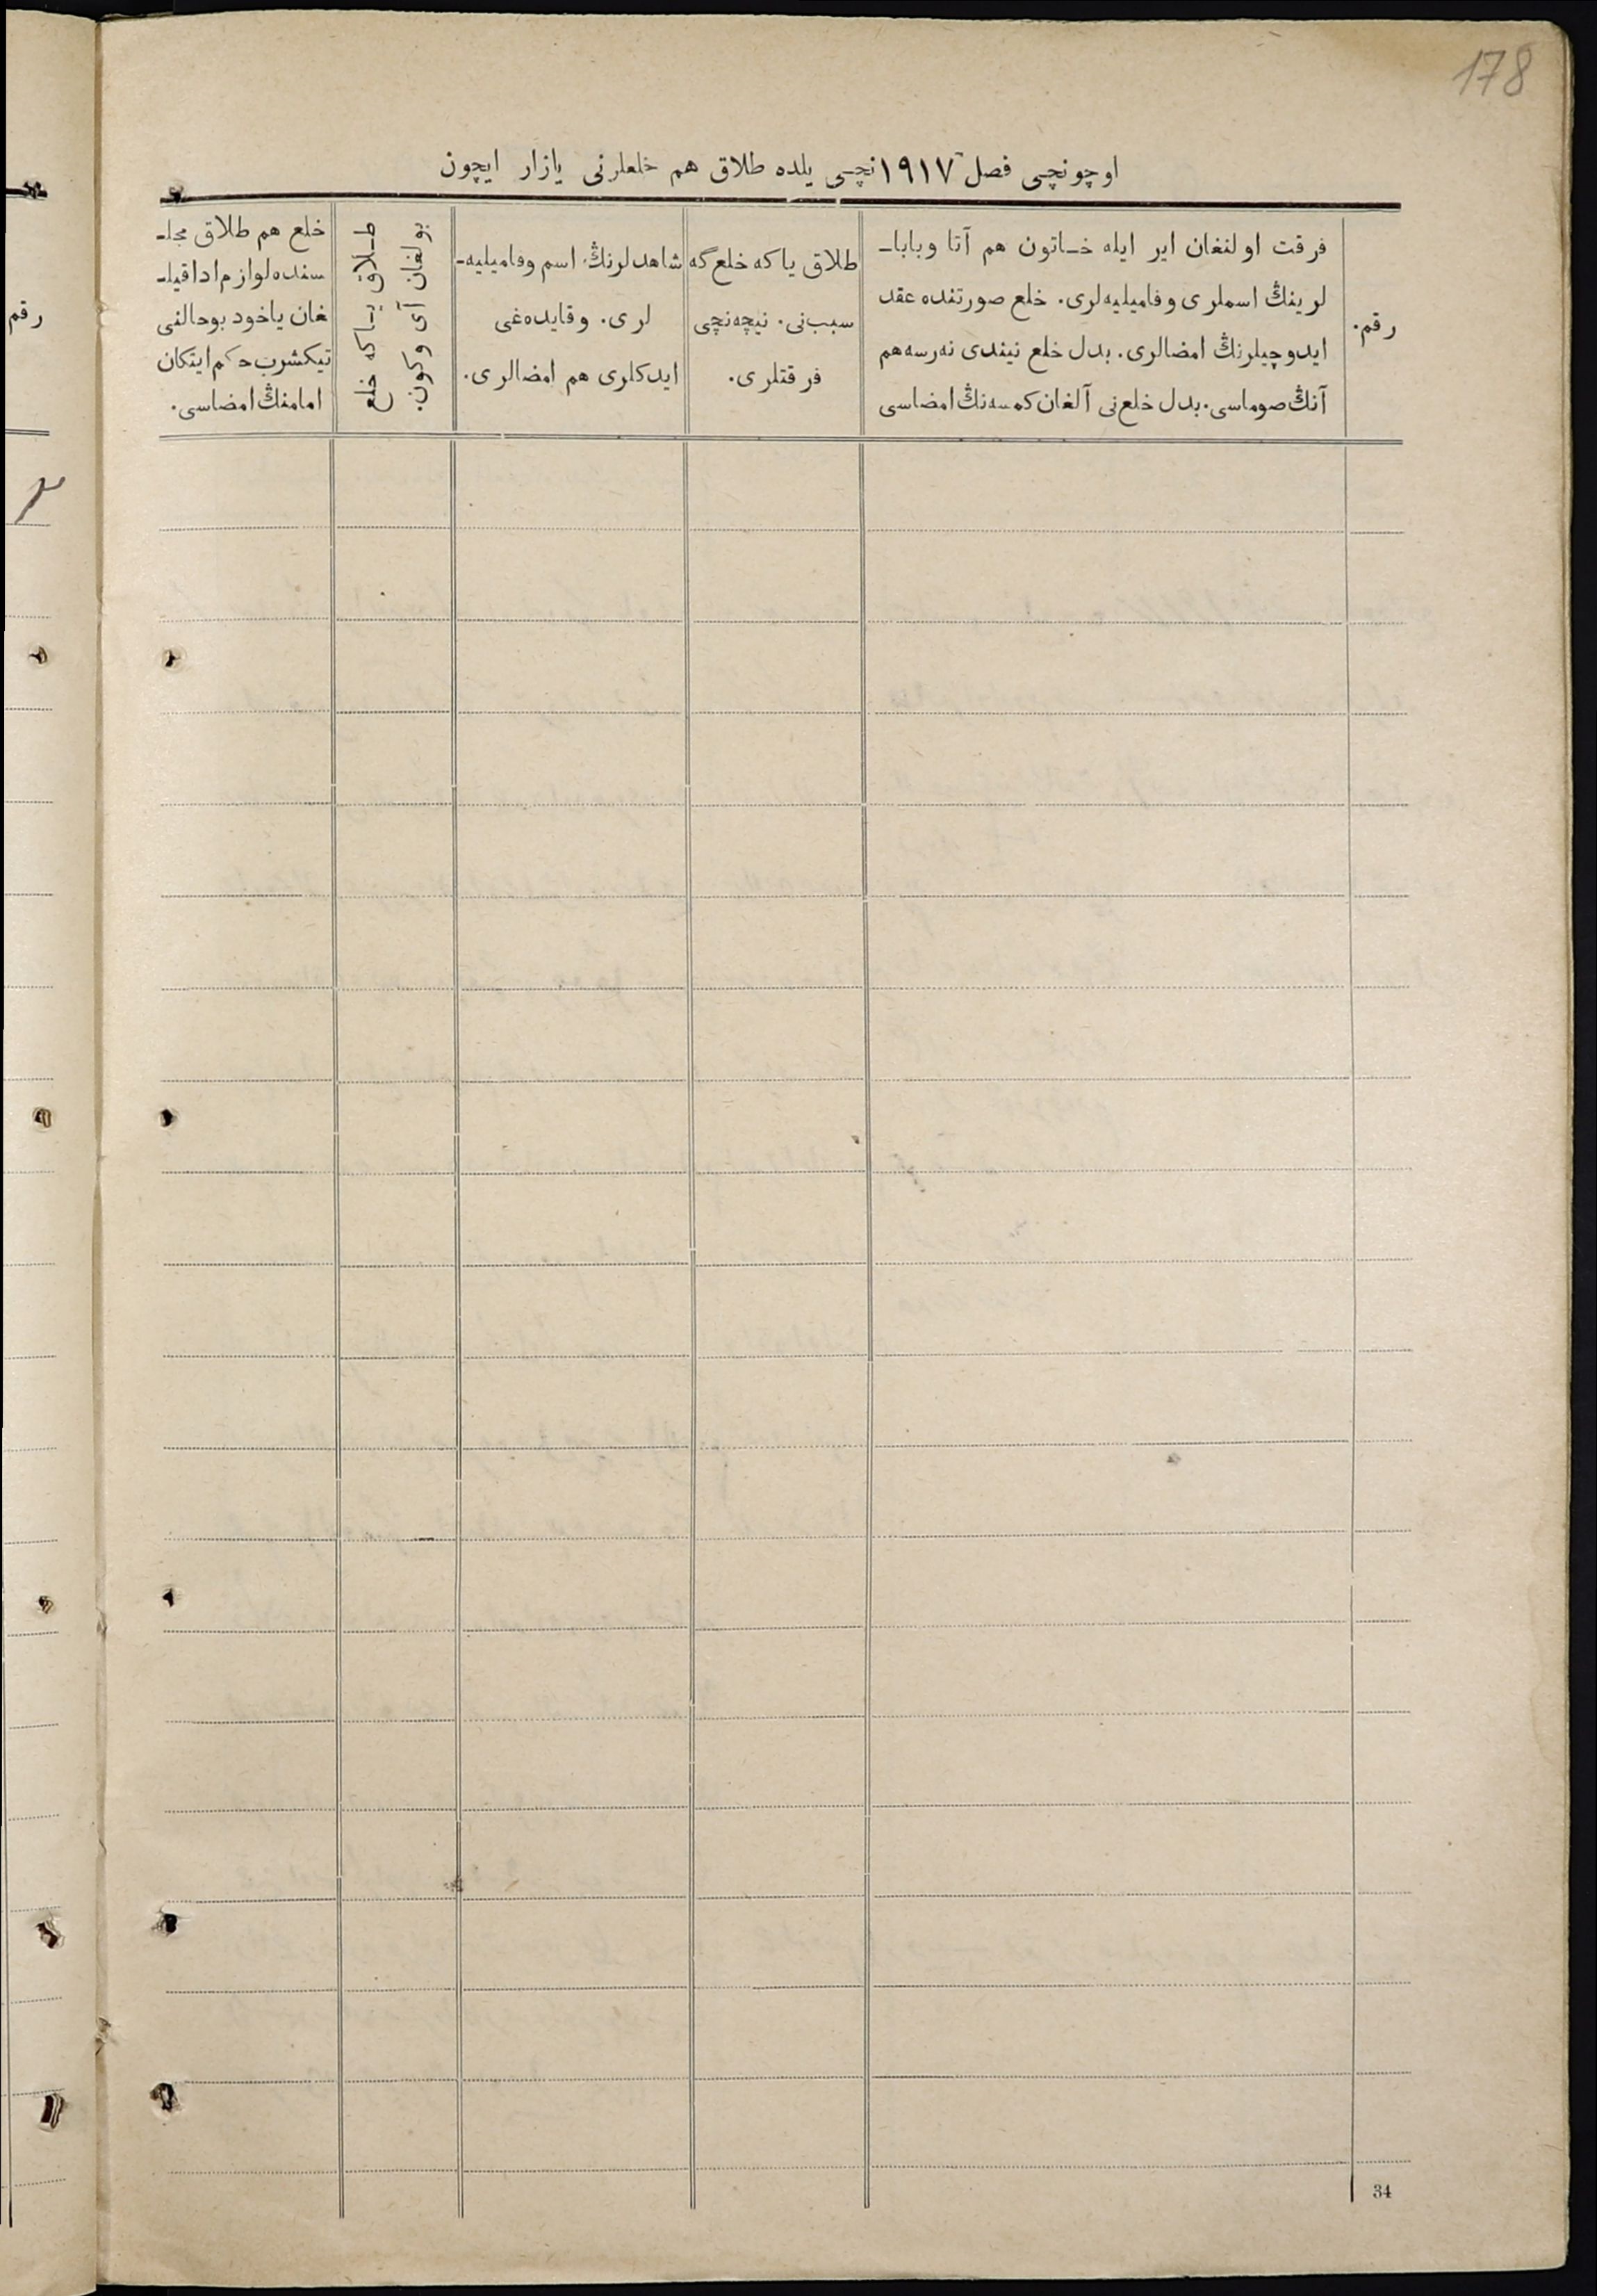 178
اوچونچی فصل ١٩١٧ نچی یلده طلاق هم خلعلرنی یازار ایچون
رقم.
فرقت اولنغان ایر ایله خـاتون هم آتا وبابا-
لرینڭ اسملری وفامیلیه‌لری. خلع صورتنده عقد
ایدوچیلرنڭ امضالری. بدل خلع نیندی نه‌رسه هم
آنڭ صوماسی. بدل خلع‌نی آلغان کمسه‌نڭ امضاسی
طلاق یاکه خلع‌گه
سبب‌نی. نیچه‌نچی
فرقتلری.
شاهدلرنڭ اسم وفامیلیه-
لری. وقایده‌غی
ایدکلری هم امضالری.
طـلاق یـاکه خلع
بولغان آی وکون.
خلع هم طلاق مجلـ
سنده لوازم ادا قیلـ
غان یاخود بوحالنی
تیکشرب حکم ایتکان
امامنڭ امضاسی.
34
رقم